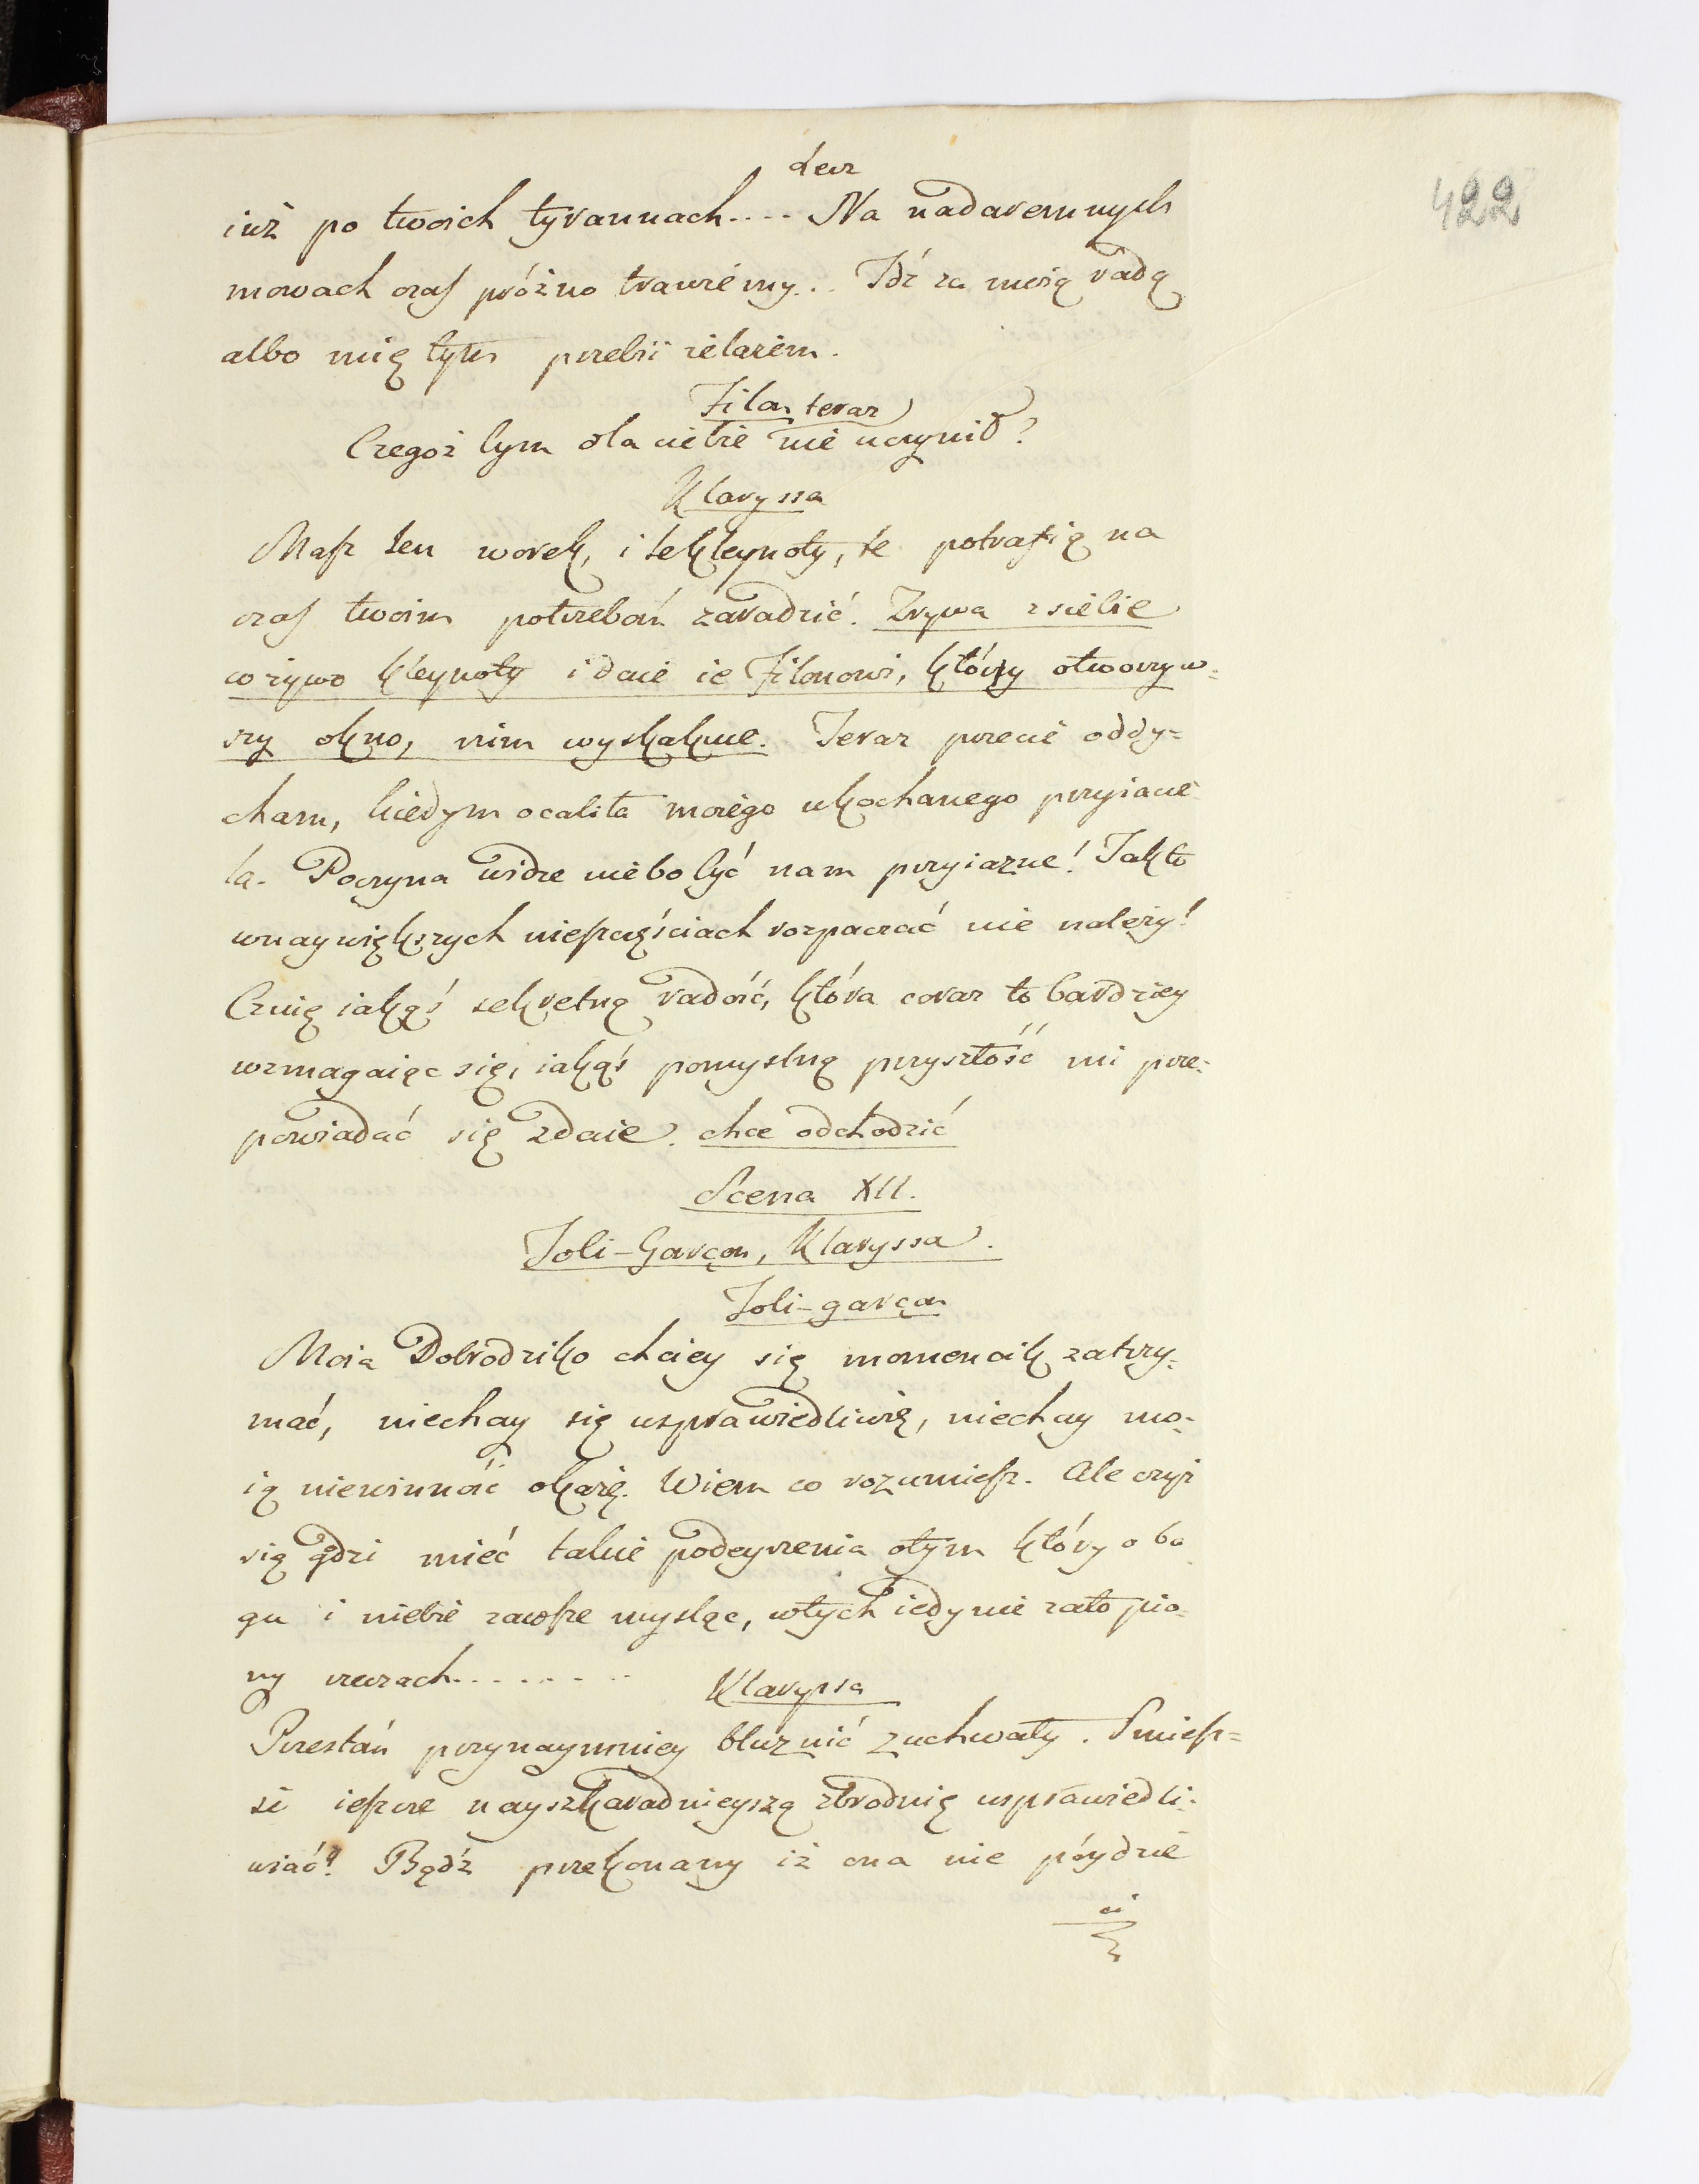 422
Lecz
iuż po twoich tyrannach.... Na nadaremnych
mowach czas próżno trawiemy... Idź za moią radą
albo mię tym przebii żelazem.
Filon teraz
Czegoż bym dla ciebie nie uczynił?
Klaryssa
Masz ten worek, i te kleynoty, te potrafią na
czas twoim potrzebóm zaradzić. Zrywa z siebie
co żywo kleynoty i daie ie Filonowi, który otworzyw-
szy okno, nim wyskakuie. Teraz przecie oddy=
cham, kiedym ocaliła moiego ukochanego przyiacie
la. Poczyna widzę niebo być nam przyiazne! Jak to
w naywiększych nieszczęściach rozpaczać nie należy!
Czuię iakąś sekretną radość, która coraz to bardziey
wzmagaiąc się, iakąś pomyślną przyszłość mi prze-
powiadać się zdaie. chce odchodzić
Scena XII.
Joli-Garçon, Klaryssa.
Joli-garçon
Moia Dobrodziko chciey się momencik zatrzy-
mać, niechay się usprawiedliwię, niechay mo-
ią niewinność okażę. Wiem co rozumiesz. Ale czyż
się godzi mieć takie podeyrzenia o tym który o bo
gu i niebie zawsze mysląc, w tych iedynie zatopio-
ny rzeczach........
Klaryssa
Przestań przynaymniey bluznić zuchwały. Smiesz=
że ieszcze nayszkaradnieyszą zbrodnię usprawiedli-
wiać? Bądź przekonany iż ona nie póydzie
ci